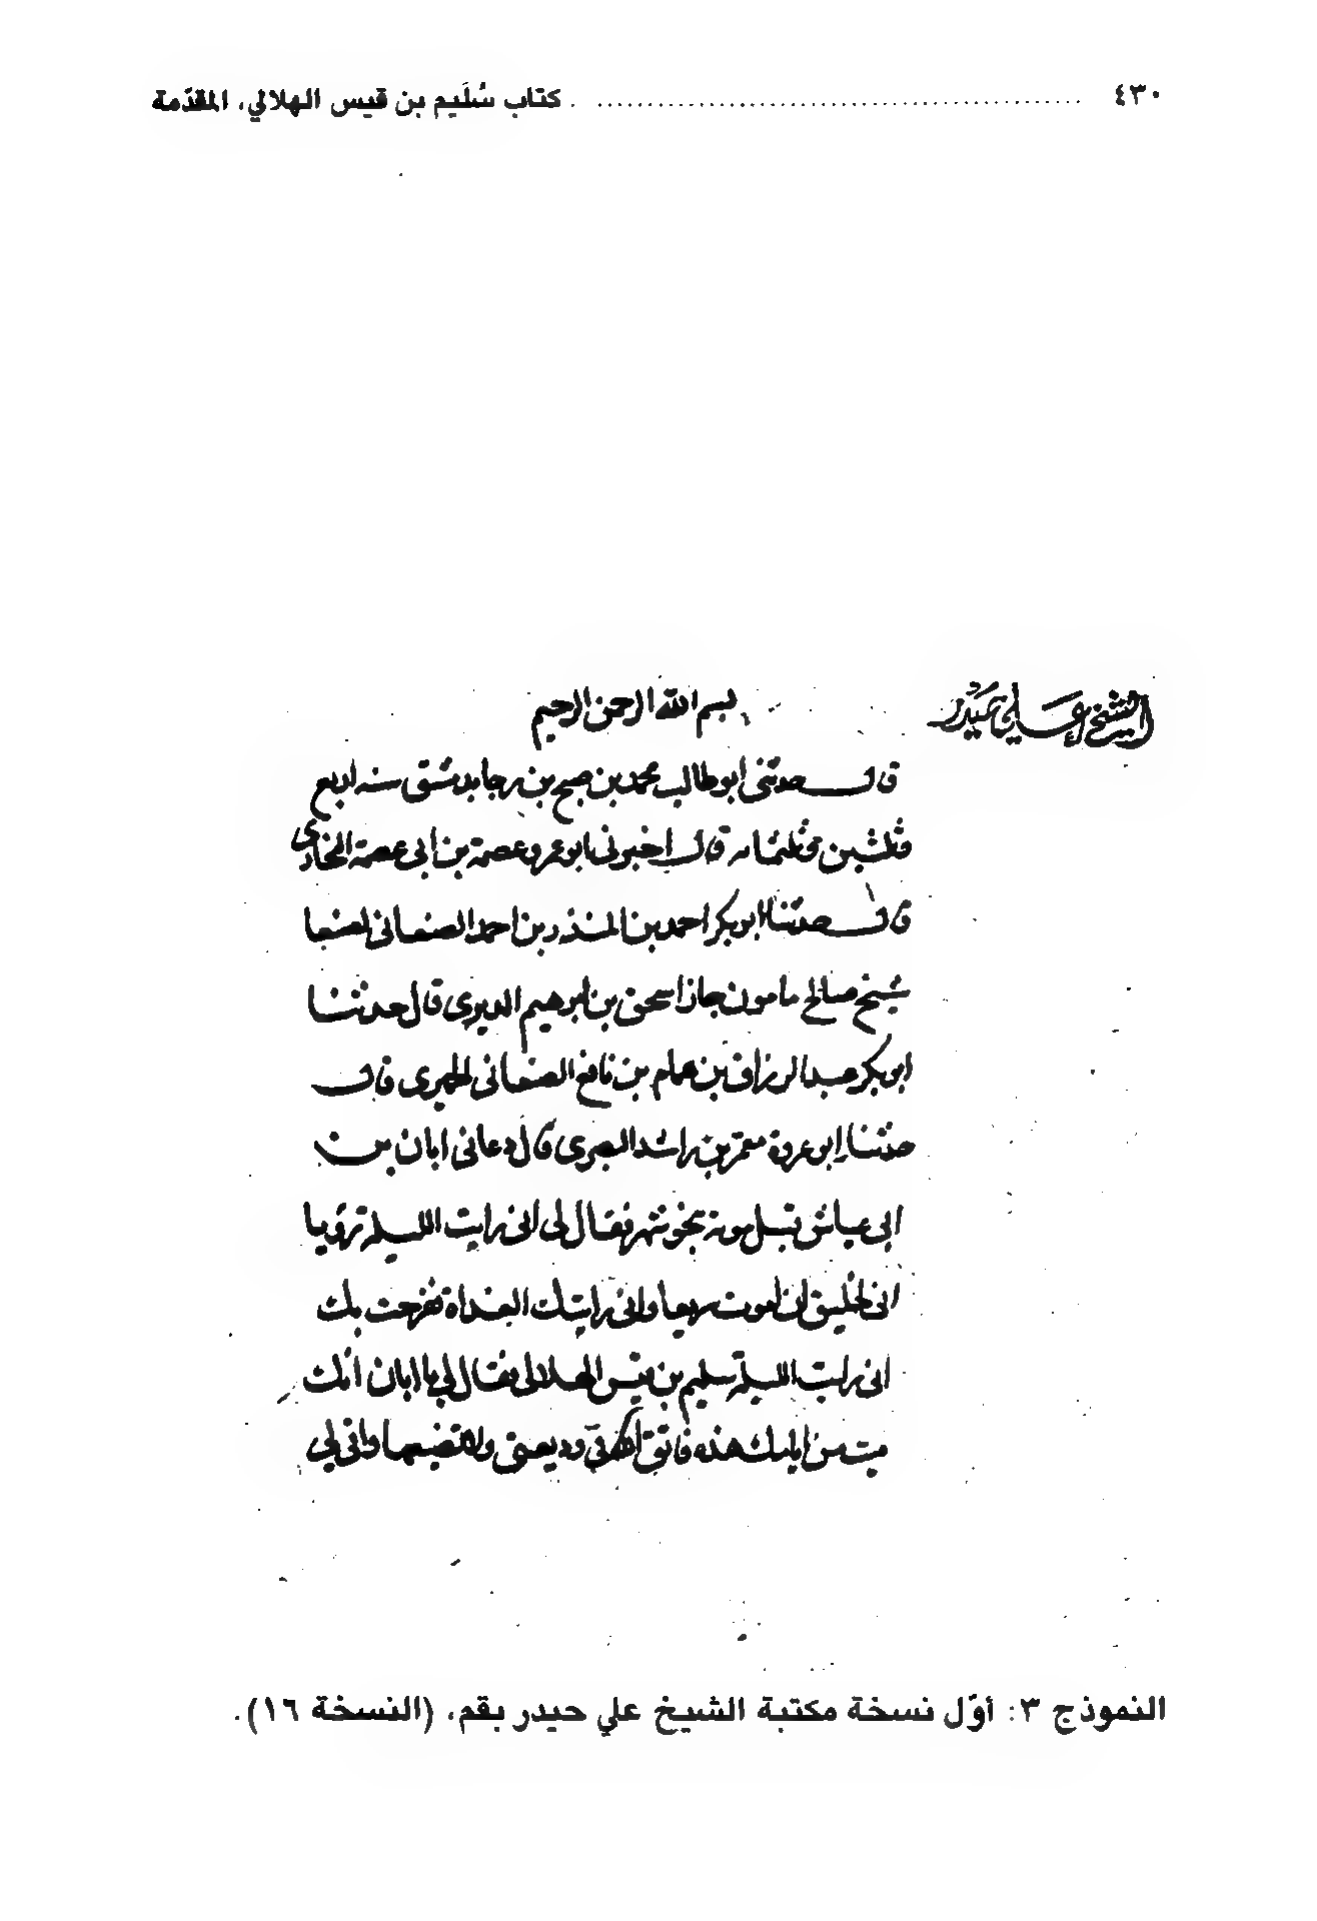 ٤٣٠ ........................................ كتاب سُلَيم بن قيس الهلالي، المقدّمة
الشيخ علي حيدر
بسم الله الرحمن الرحيم
قال حدثنى ابو طالب محمد بن صبح بن رجا بدمشق سنه اربع
وثلثين وثلثمائه قال اخبرنى ابو عمرو عصمة بن ابى عصمة البخارى
قال حدثنا ابو بكر احمد بن المنذر بن احمد الصنعانى بصنعا
شيخ صالح مامون جار اسحق بن ابرهيم الديرى قال حدثنا
ابو بكر عبد الرزاق بن همام بن نافع الصنعانى الحميرى قال
حدثنا ابو عروة معمر بن راشد البصرى قال دعانى ابان بن
ابى عياش قبل موته بنحو شهر فقال لى انى رايت الليلة رؤيا
انى لخليق ان اموت سريعا وانى رايتك الغداة ففرحت بك
انى رايت الليلة سليم بن قيس الهلالى فقال لى يا ابان انك
ميت من ايامك هذه فاتق الله فى وديعتى ولا تضيعها وفى لى
النموذج ٣: أوّل نسخة مكتبة الشيخ علي حيدر بقم، (النسخة ١٦).